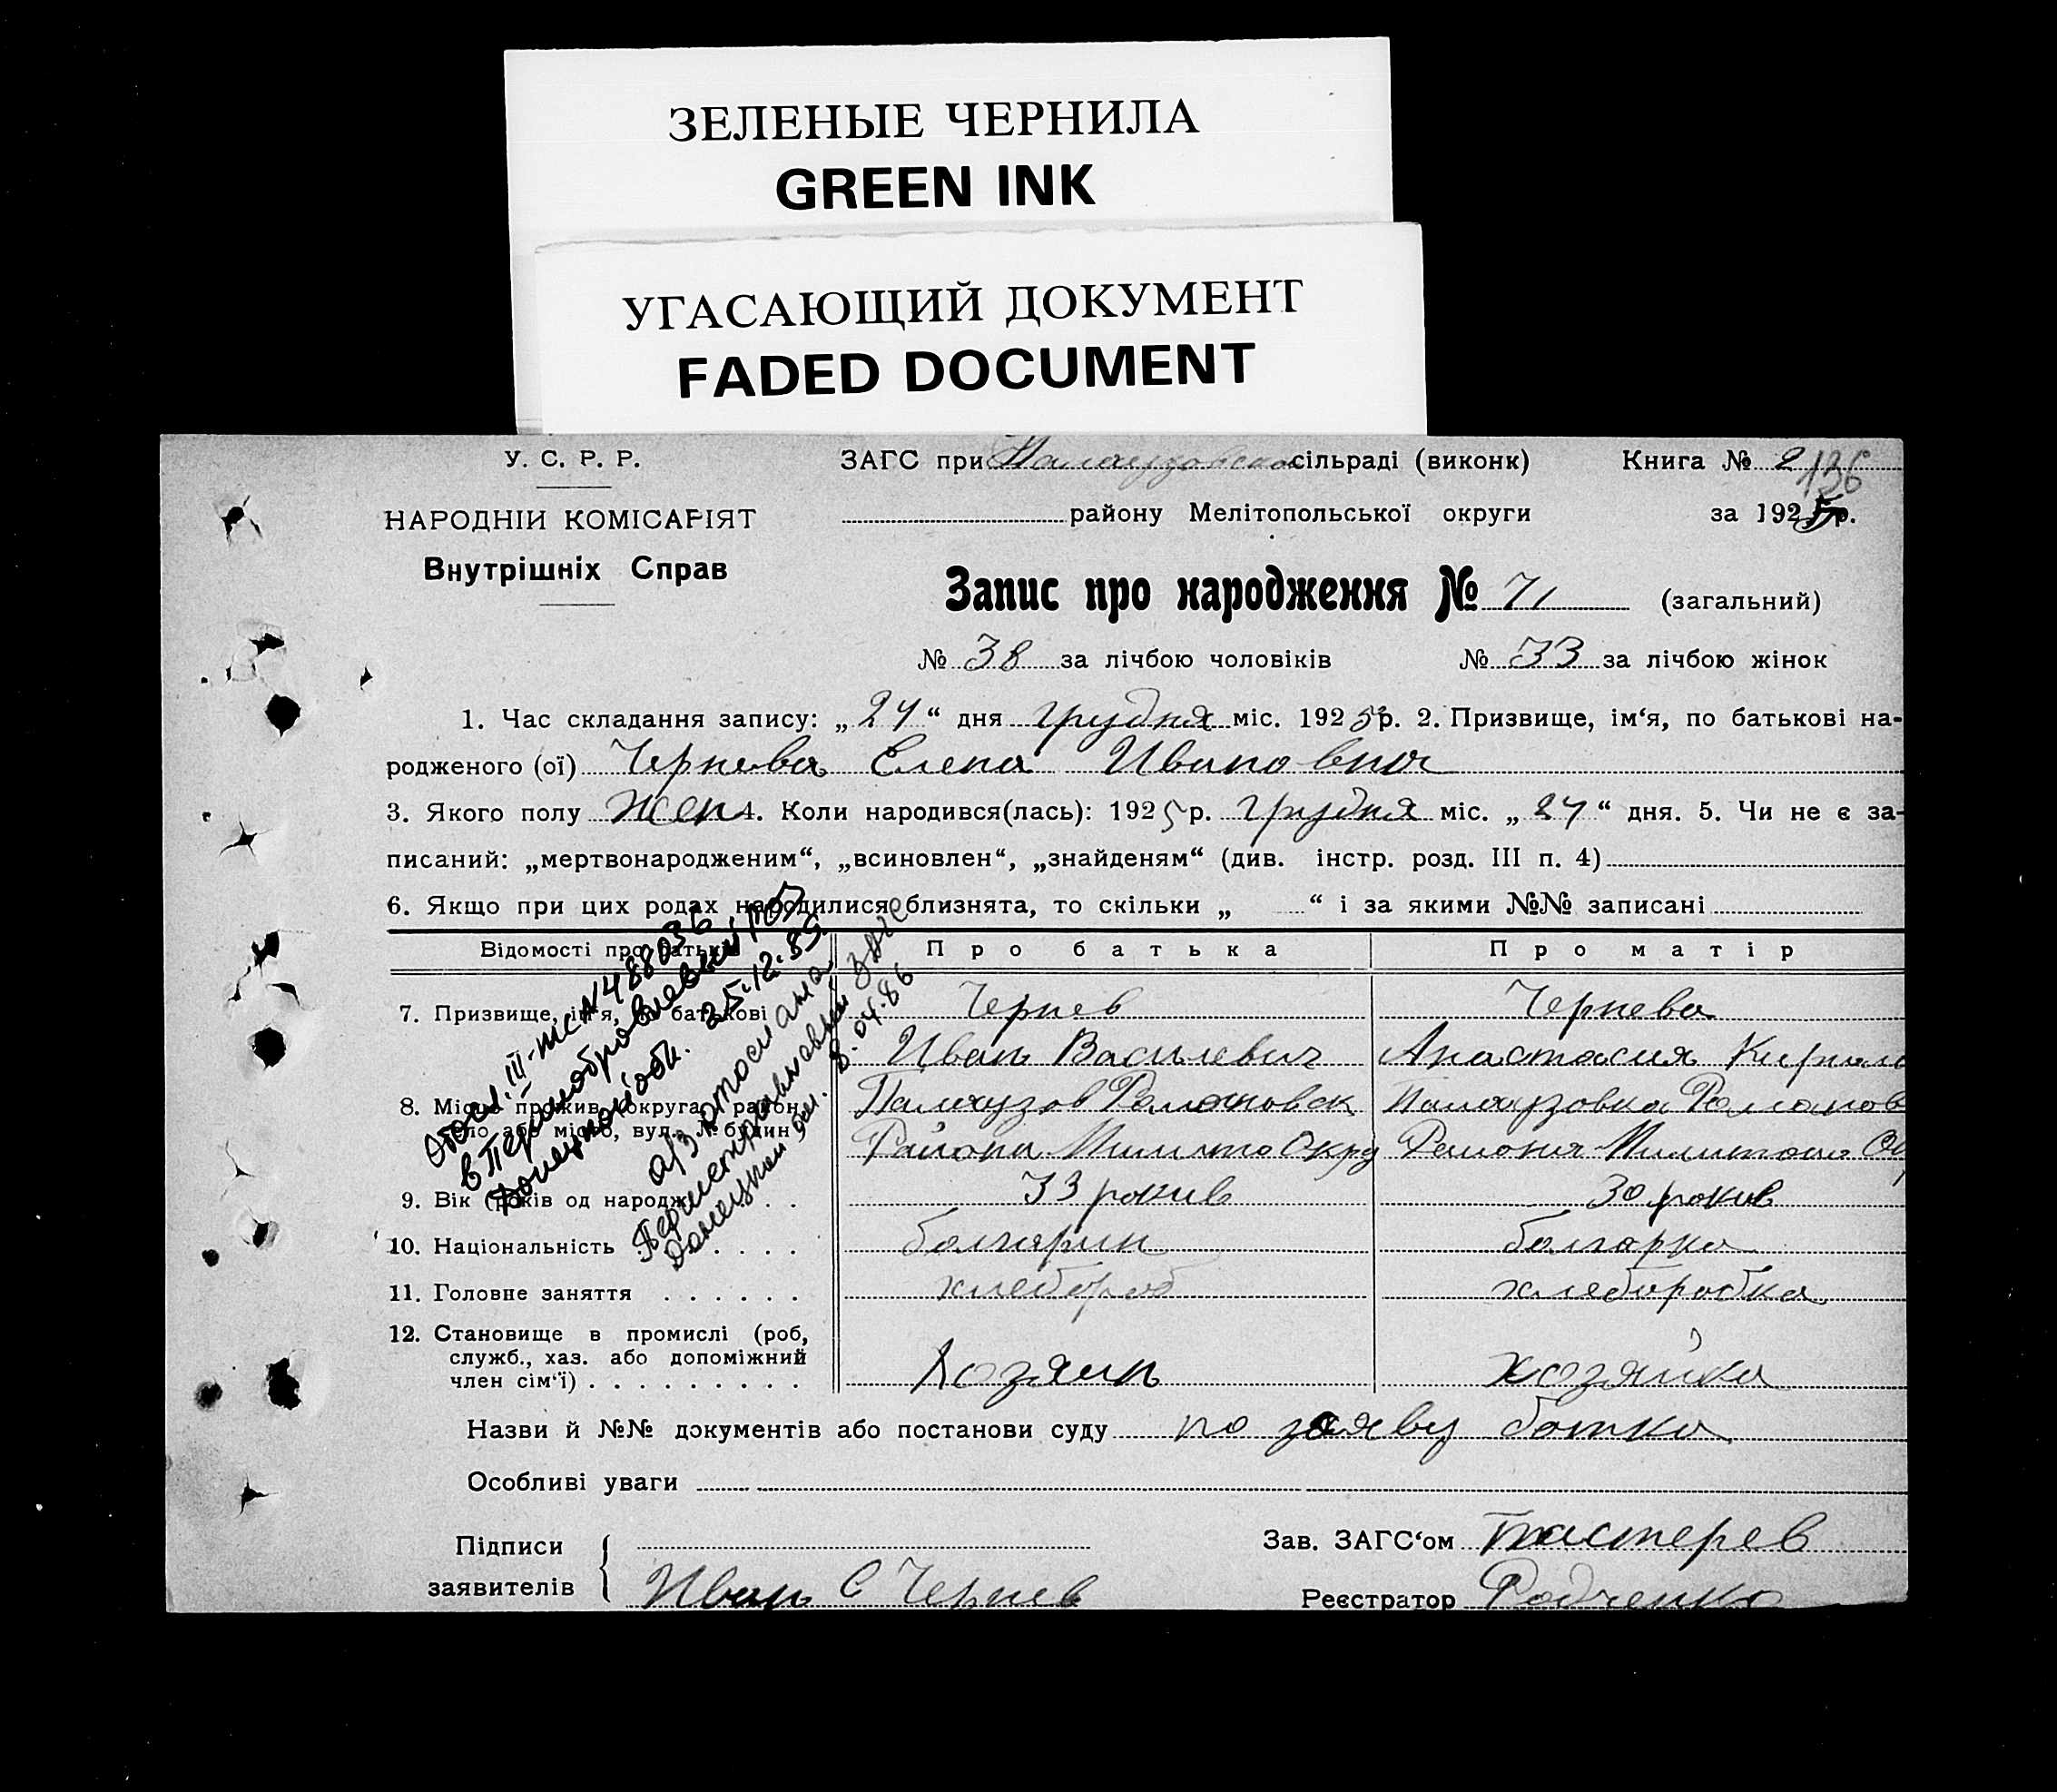 ЗЕЛЕНЫЕ ЧЕРНИЛА
GREEN INK
УГАСАЮЩИЙ ДОКУМЕНТ
FADED DOCUMENT
У. С. Р. Р.
ЗАГС при сільраді (виконк) Книга № 2
136
НАРОДНІИ КОМІСАРІЯТ
району Мелітопольської округи за 1925 р.
Внутрішніх Справ
Запис про народження № 71 (загальний)
№ 38 за лічбою чоловіків № 33 за лічбою жінок
1. Час складання запису: „ 24 “ дня грудня міс. 1925 р. 2. Призвище, ім‘я, по батькові на-
родженого (ої) Чернева Елена Ивановна
3. Якого полу жен 4. Коли народився(лась): 1925 р. грудня міс. „ 24 “ дня. 5. Чи не є за-
писаний: „мертвонародженим“, „всиновлен“, „знайденям“ (див. інстр. розд. III п. 4)
6. Якщо при цих родах народилися близнята, то скільки „ “ і за якими №№ записані
Відомості про батьків Про батька Про матір
7. Призвище, ім‘я, по батькові Чернев Чернева
Иван Василевич Анастасия Кирило
8. Місце прожив. (округа, район, Палаузов Романовск Палаузовка Романов
село або місто, вул., № будин.) Района Милито Окру Района Милитопо Ок
9. Вік (років од народж.) 33 рокив 30 рокив
10. Національність болгарин болгарка
11. Головне заняття хлебороб хлеборобка
12. Становище в промислі (роб,
служб., хаз. або допоміжний
член сім‘ї) Хозяин хозяйка
Назви й №№ документів або постанови суду по заяву батка
Особливі уваги
Підписи
заявителів Иван С Чернев
Зав. ЗАГС‘ом
Реєстратор Радченко
III-ЖС № 488036
25.12.85.
а/з отослана
ЗАГС
8.04.86